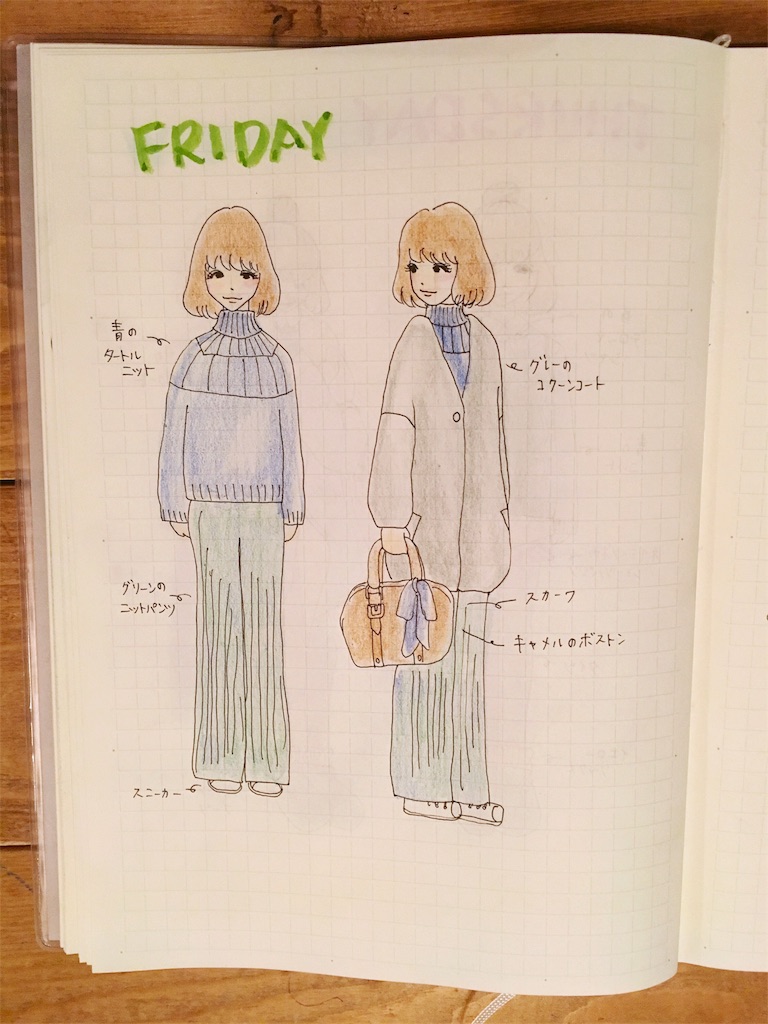 FRIDAY
青の
タートル
ニット
グレーの
コクーンコート
グリーンの
ニットパンツ
スカーフ
キャメルのボストン
スニーカー